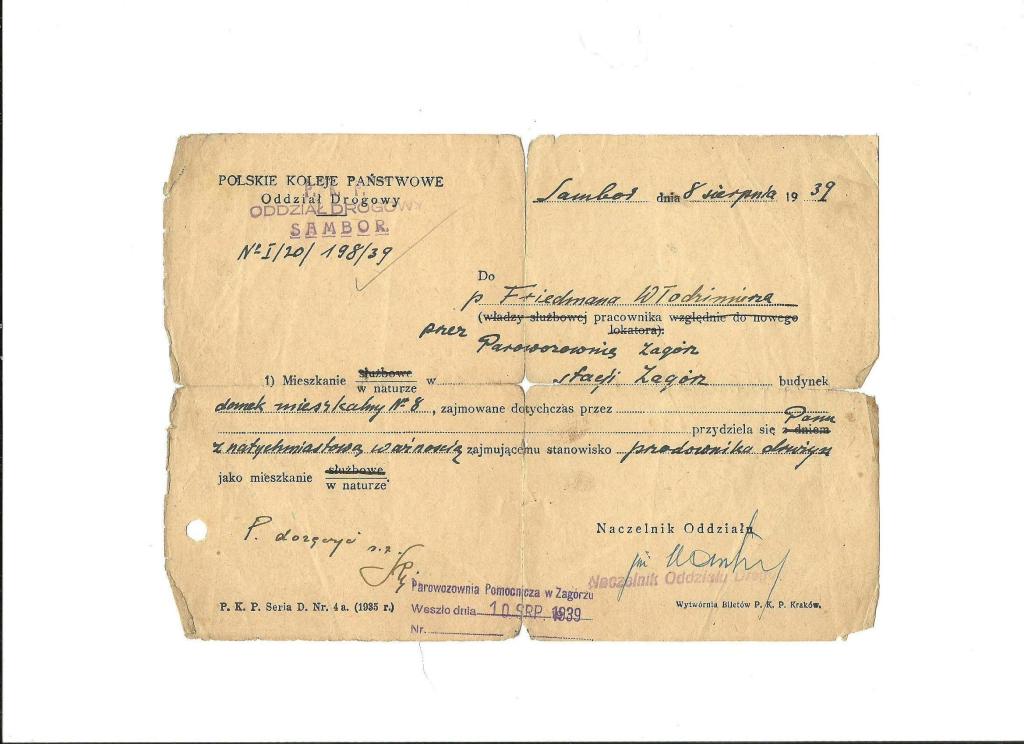 POLSKIE KOLEJE PAŃSTWOWE
Oddział Drogowy
P. K. P.
ODDZIAŁ DROGOWY
SAMBOR.
Nr I/20/ 198/39
Sambor dnia 8 sierpnia 19 39
Do
p Friedmana Włodzimierza
(władzy służbowej pracownika względnie do nowego
lokatora).
przez Parowozownię Zagórz
1) Mieszkanie służbowe w naturze w stacji Zagórz budynek
domek mieszkalny Nr 8, zajmowane dotychczas przez
Panu
przydziela się z dniem
z natychmiastową ważnością zajmującemu stanowisko przodownika drużyn
jako mieszkanie służbowe w naturze.
Naczelnik Oddziału
P. doręczyć
Naczelnik Oddziału Drog
Parowozownia Pomocnicza w Zagórzu
Weszło dnia 10 SRP. 1939
Nr.
P. K. P. Seria D. Nr. 4a. (1935 r.)
Wytwórnia Biletów P. K. P. Kraków.